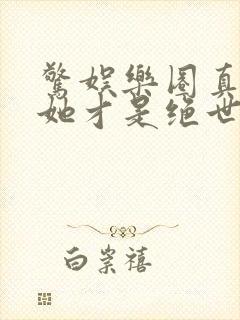 驚娛樂圈真
她才是绝世
白崇禧